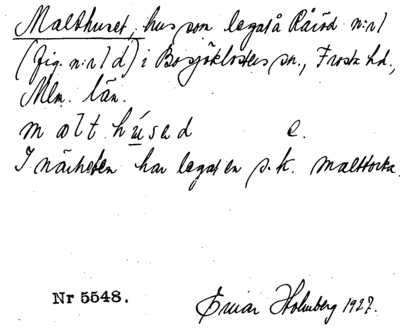 Malthuset, hus som legat å Råröd n:r 1
(fig. n:r 1 d) i Bosjöklosters sn., Frosta hd.,
Mlm. län.
malthúsed e.
I närheten har legat en s.k. malttorka.
Nr 5548.
Einar Holmberg 1927.